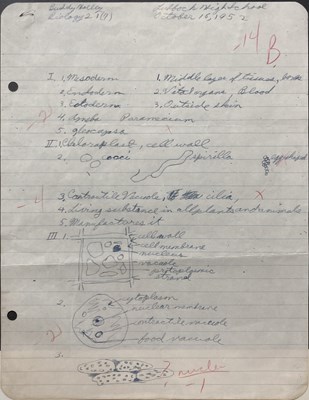 Buddy Holley
Lubbock High School
Biology 2 1(4)
October 15, 1952
-14
B.
I. 1. Mesoderm
1. Middle layer of tissue, bone
2. Endoderm
2. Vital organs, Blood
3. Ectoderm
3. Outside skin
-2
4. Paramecium
5.
II 1. Chloroplast, cell wall
2. cocci
spirilla
3. Contractile Vacuole, cilia, X
-4
4. Living substance in all plants and animals
5. Manufactures it
III. 1. cell wall
cell membrane
nucleus
vacuole
protoplasmic
strand
2. cytoplasm
nuclear membrane
-2
contractile vacuole
food vacuole
3.
-1